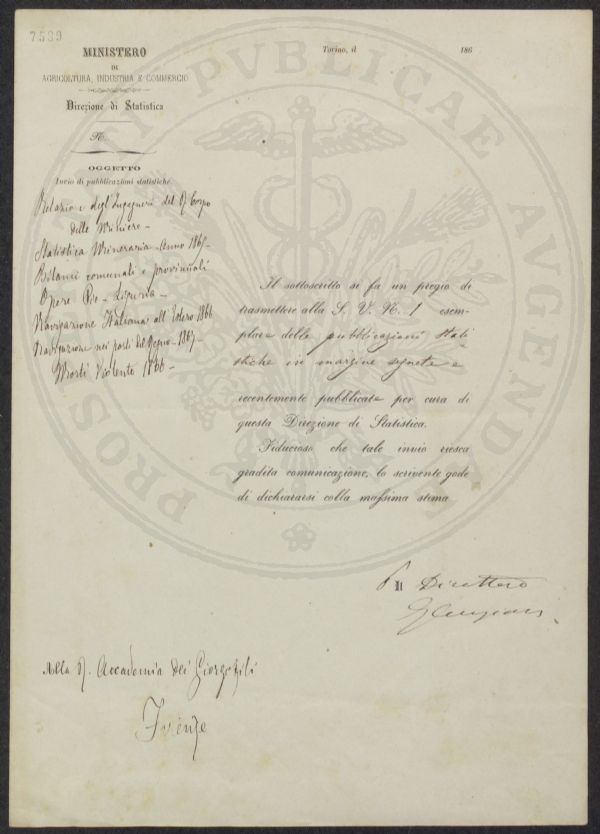 7599
MINISTERO
DI
AGRICOLTURA, INDUSTRIA E COMMERCIO
Direzione di Statistica
N.
OGGETTO
Invio di pubblicazioni statistiche
Relazioni degl'Ingegneri del R. Corpo
delle Miniere -
Statistica Mineraria - Anno 1865 -
Bilanci comunali e provinciali
Opere Pie - Liguria -
Navigazione Italiana all'Estero 1866
Navigazione nei porti del Regno - 1867 -
Morti Violente 1866 -
Torino, il 186
Il sottoscritto si fa un pregio di
trasmettere alla S. V. N. 1 esem-
plare delle pubblicazioni stati
stiche in margine segnate e
recentemente pubblicate per cura di
questa Direzione di Statistica.
Fiducioso che tale invio riesca
gradita comunicazione, lo scrivente gode
di dichiararsi colla massima stima
P Il Direttore
Alla R. Accademia dei Giorgofili
Firenze
PROSPERITATI PVBLICAE AVGENDAE